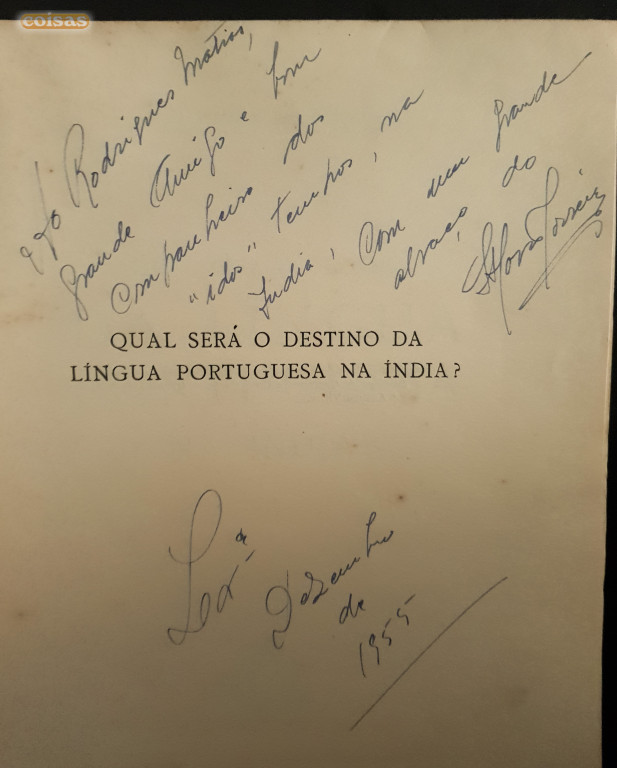 coisas
Ao Rodrigues Matias,
grande Amigo e bom
companheiro dos
"idos" tempos, na
Índia, com um grande
abraço do
QUAL SERÁ O DESTINO DA
LÍNGUA PORTUGUESA NA ÍNDIA?
Lxª
Dezembro
de
1955